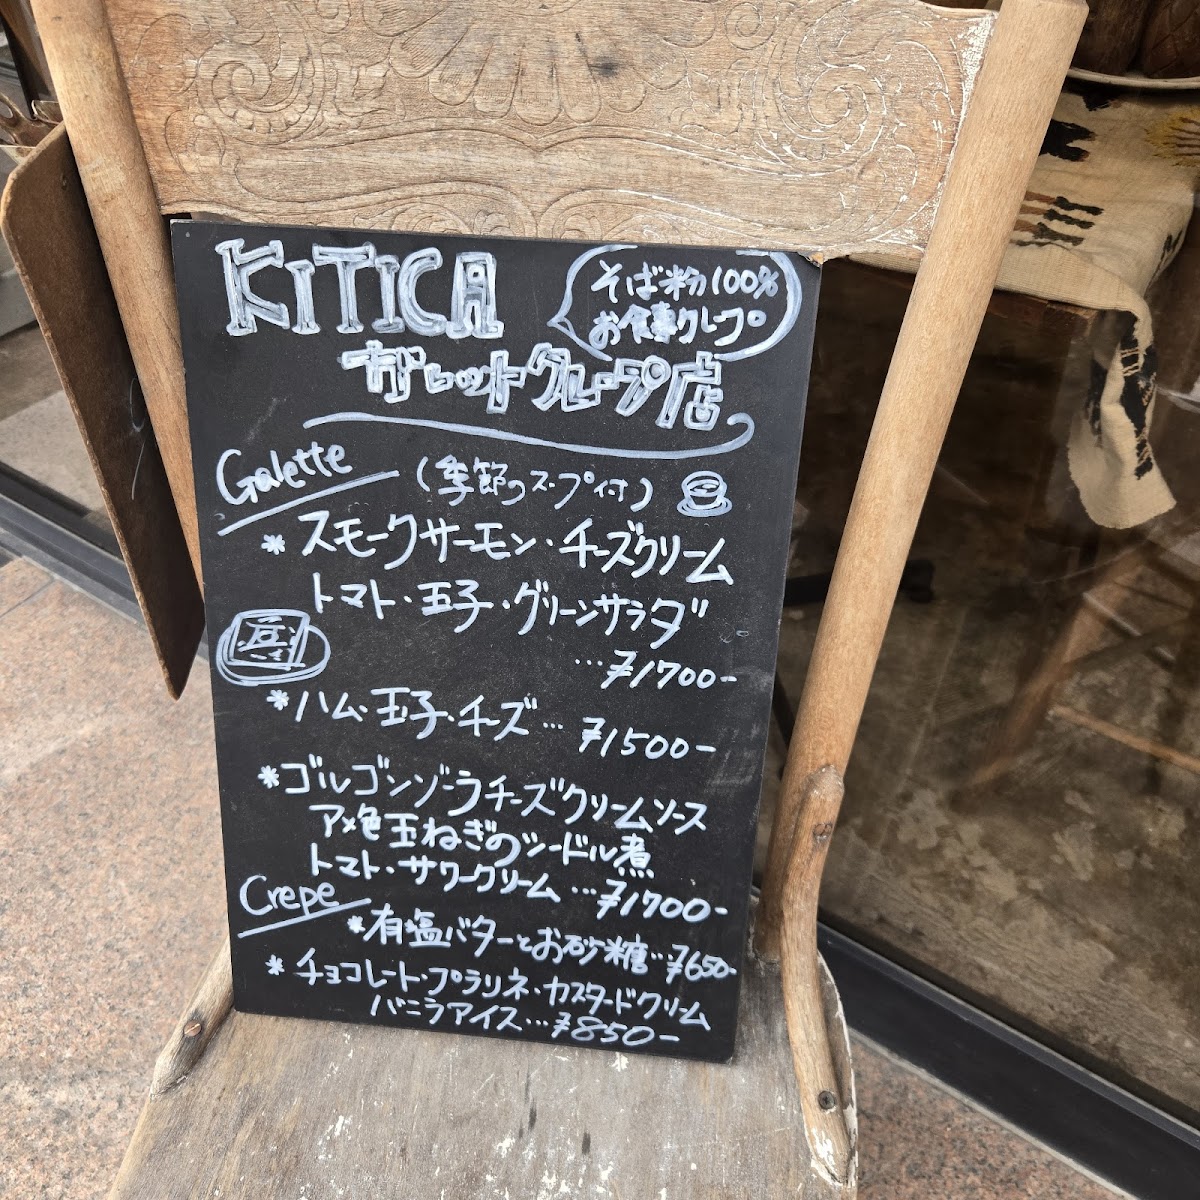 KITICA
そば粉100%
お食事クレープ
ガレットクレープ店
Galette (季節のスープ付)
* スモークサーモン・チーズクリーム
トマト・玉子・グリーンサラダ
…¥1700-
* ハム・玉子・チーズ… ¥1500-
* ゴルゴンゾーラチーズクリームソース
アメ色玉ねぎのシードル煮
トマト・サワークリーム …¥1700-
Crepe
* 有塩バターとお砂糖…¥650-
* チョコレート・プラリネ・カスタードクリーム
バニラアイス…¥850-